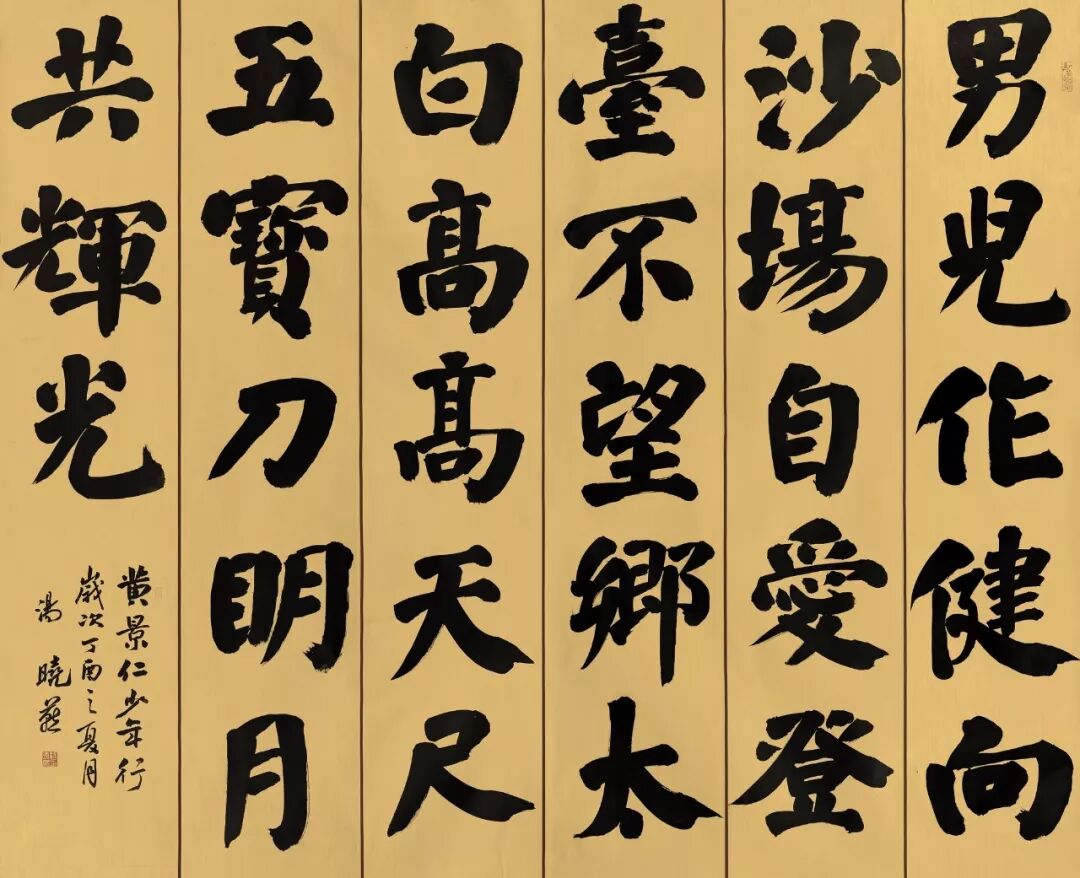 男兒作健向
沙場自愛登
臺不望鄉太
白高高天尺
五寶刀明月
共輝光
黄景仁少年行
歲次丁酉之夏月
湯曉燕